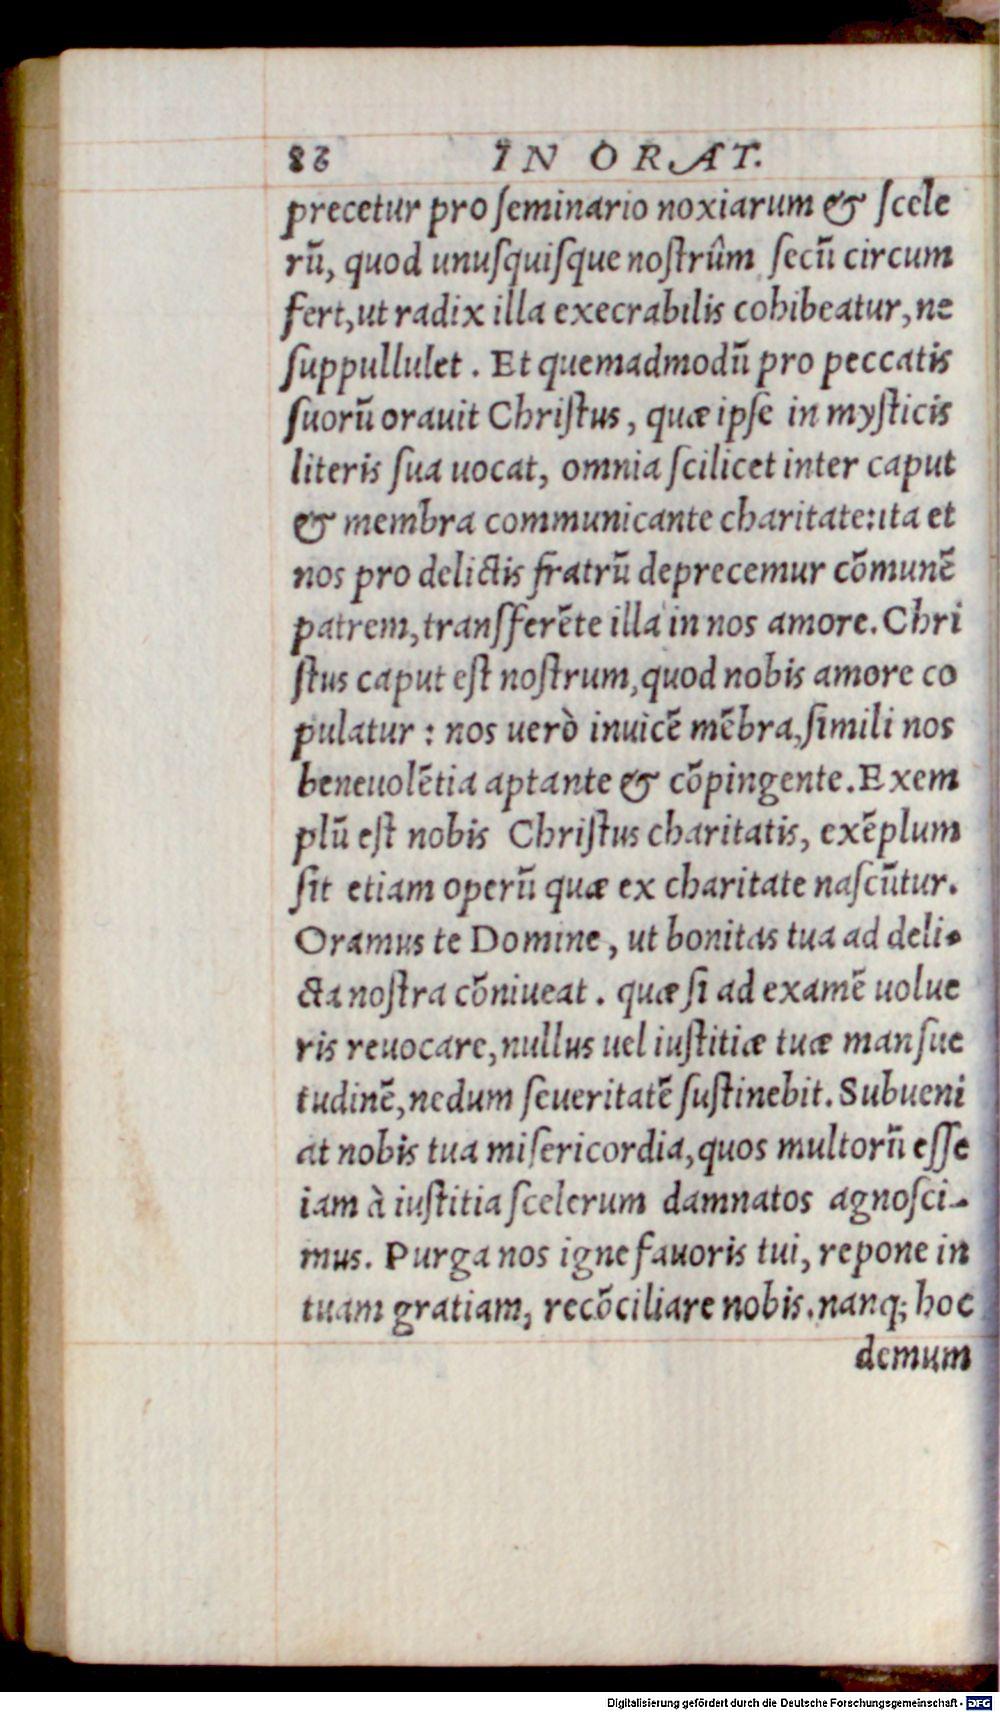 86 IN ORAT.
precetur pro ſeminario noxiarum & ſcele
rū, quod unuſquiſque noſtrûm ſecū circum
fert, ut radix illa execrabilis cohibeatur, ne
ſuppullulet. Et quemadmodū pro peccatis
ſuorū orauit Chriſtus, quæ ipſe in myſticis
literis ſua uocat, omnia ſcilicet inter caput
& membra communicante charitate: ita et
nos pro delictis fratrū deprecemur cōmunē
patrem, transſferēte illa in nos amore. Chri
ſtus caput eſt noſtrum, quod nobis amore co
pulatur: nos uerò inuicē mēbra, ſimili nos
beneuolētia aptante & cōpingente. Exem
plū eſt nobis Chriſtus charitatis, exēplum
ſit etiam operū quæ ex charitate naſcūtur.
Oramus te Domine, ut bonitas tua ad deli-
cta noſtra cōniueat. quæ ſi ad examē uolue
ris reuocare, nullus uel iuſtitiæ tuæ manſue
tudinē, nedum ſeueritatē ſuſtinebit. Subueni
at nobis tua miſericordia, quos multorū eſſe
iam à iuſtitia ſcelerum damnatos agnoſci-
mus. Purga nos igne fauoris tui, repone in
tuam gratiam, recōciliare nobis. nanq; hoc
demum
Digitalisierung gefördert durch die Deutsche Forschungsgemeinschaft - DFG